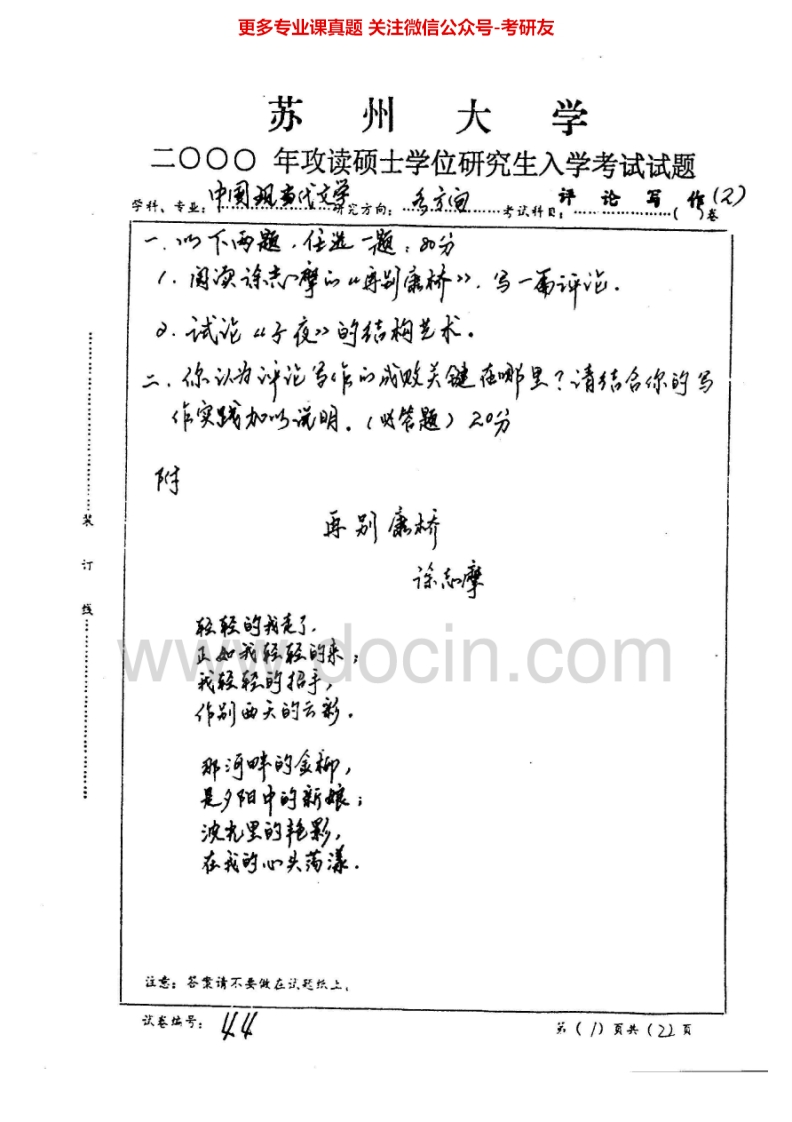 更多专业课真题 关注微信公众号-考研友
苏州大学
二〇〇〇 年攻读硕士学位研究生入学考试试题
学科、专业:中国现当代文学 研究方向:各方向 考试科目:评论写作(2)( )卷
一.以下两题,任选一题:80分
1.阅读徐志摩的《再别康桥》,写一篇评论.
2.试论《子夜》的结构艺术.
二.你认为评论写作的成败关键在哪里?请结合你的写
作实践加以说明.(必答题)20分
附
再别康桥
徐志摩
轻轻的我走了.
正如我轻轻的来;
我轻轻的招手,
作别西天的云彩.
那河畔的金柳,
是夕阳中的新娘;
波光里的艳影,
在我的心头荡漾.
www.docin.com
装订线
注意:答案请不要做在试题纸上.
试卷编号:44
第(1)页共(2)2页